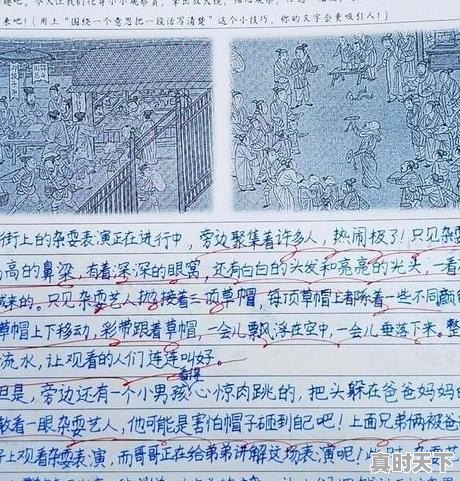 趣吧！今天让我们化身小小观察员，拿出放大镜，细心观察，
来吧！（用上“围绕一个意思把一段话写清楚”这个小技巧，你的文字会更吸引人！）
街上的杂耍表演正在进行中，旁边聚集着许多人，热闹极了！只见杂
高高的鼻梁，有着深深的眼窝，还有白白的头发和亮亮的光头，一看
域来的。只见杂耍艺人抛接着三顶草帽，每顶草帽上都除着一些不同颜
草帽上下移动，彩带跟着草帽，一会儿飘浮在空中，一会儿垂落下来。整
流水，让观看的人们连连叫好。
看得
但是，旁边还有一个小男孩心惊肉跳的，把头躲在爸爸妈妈的
敢看一眼杂耍艺人，他可能是害怕帽子砸到自己吧！上面兄弟俩被爸
子上观看杂耍表演，而哥哥正在给弟弟讲解这场表演呢！
真时天下